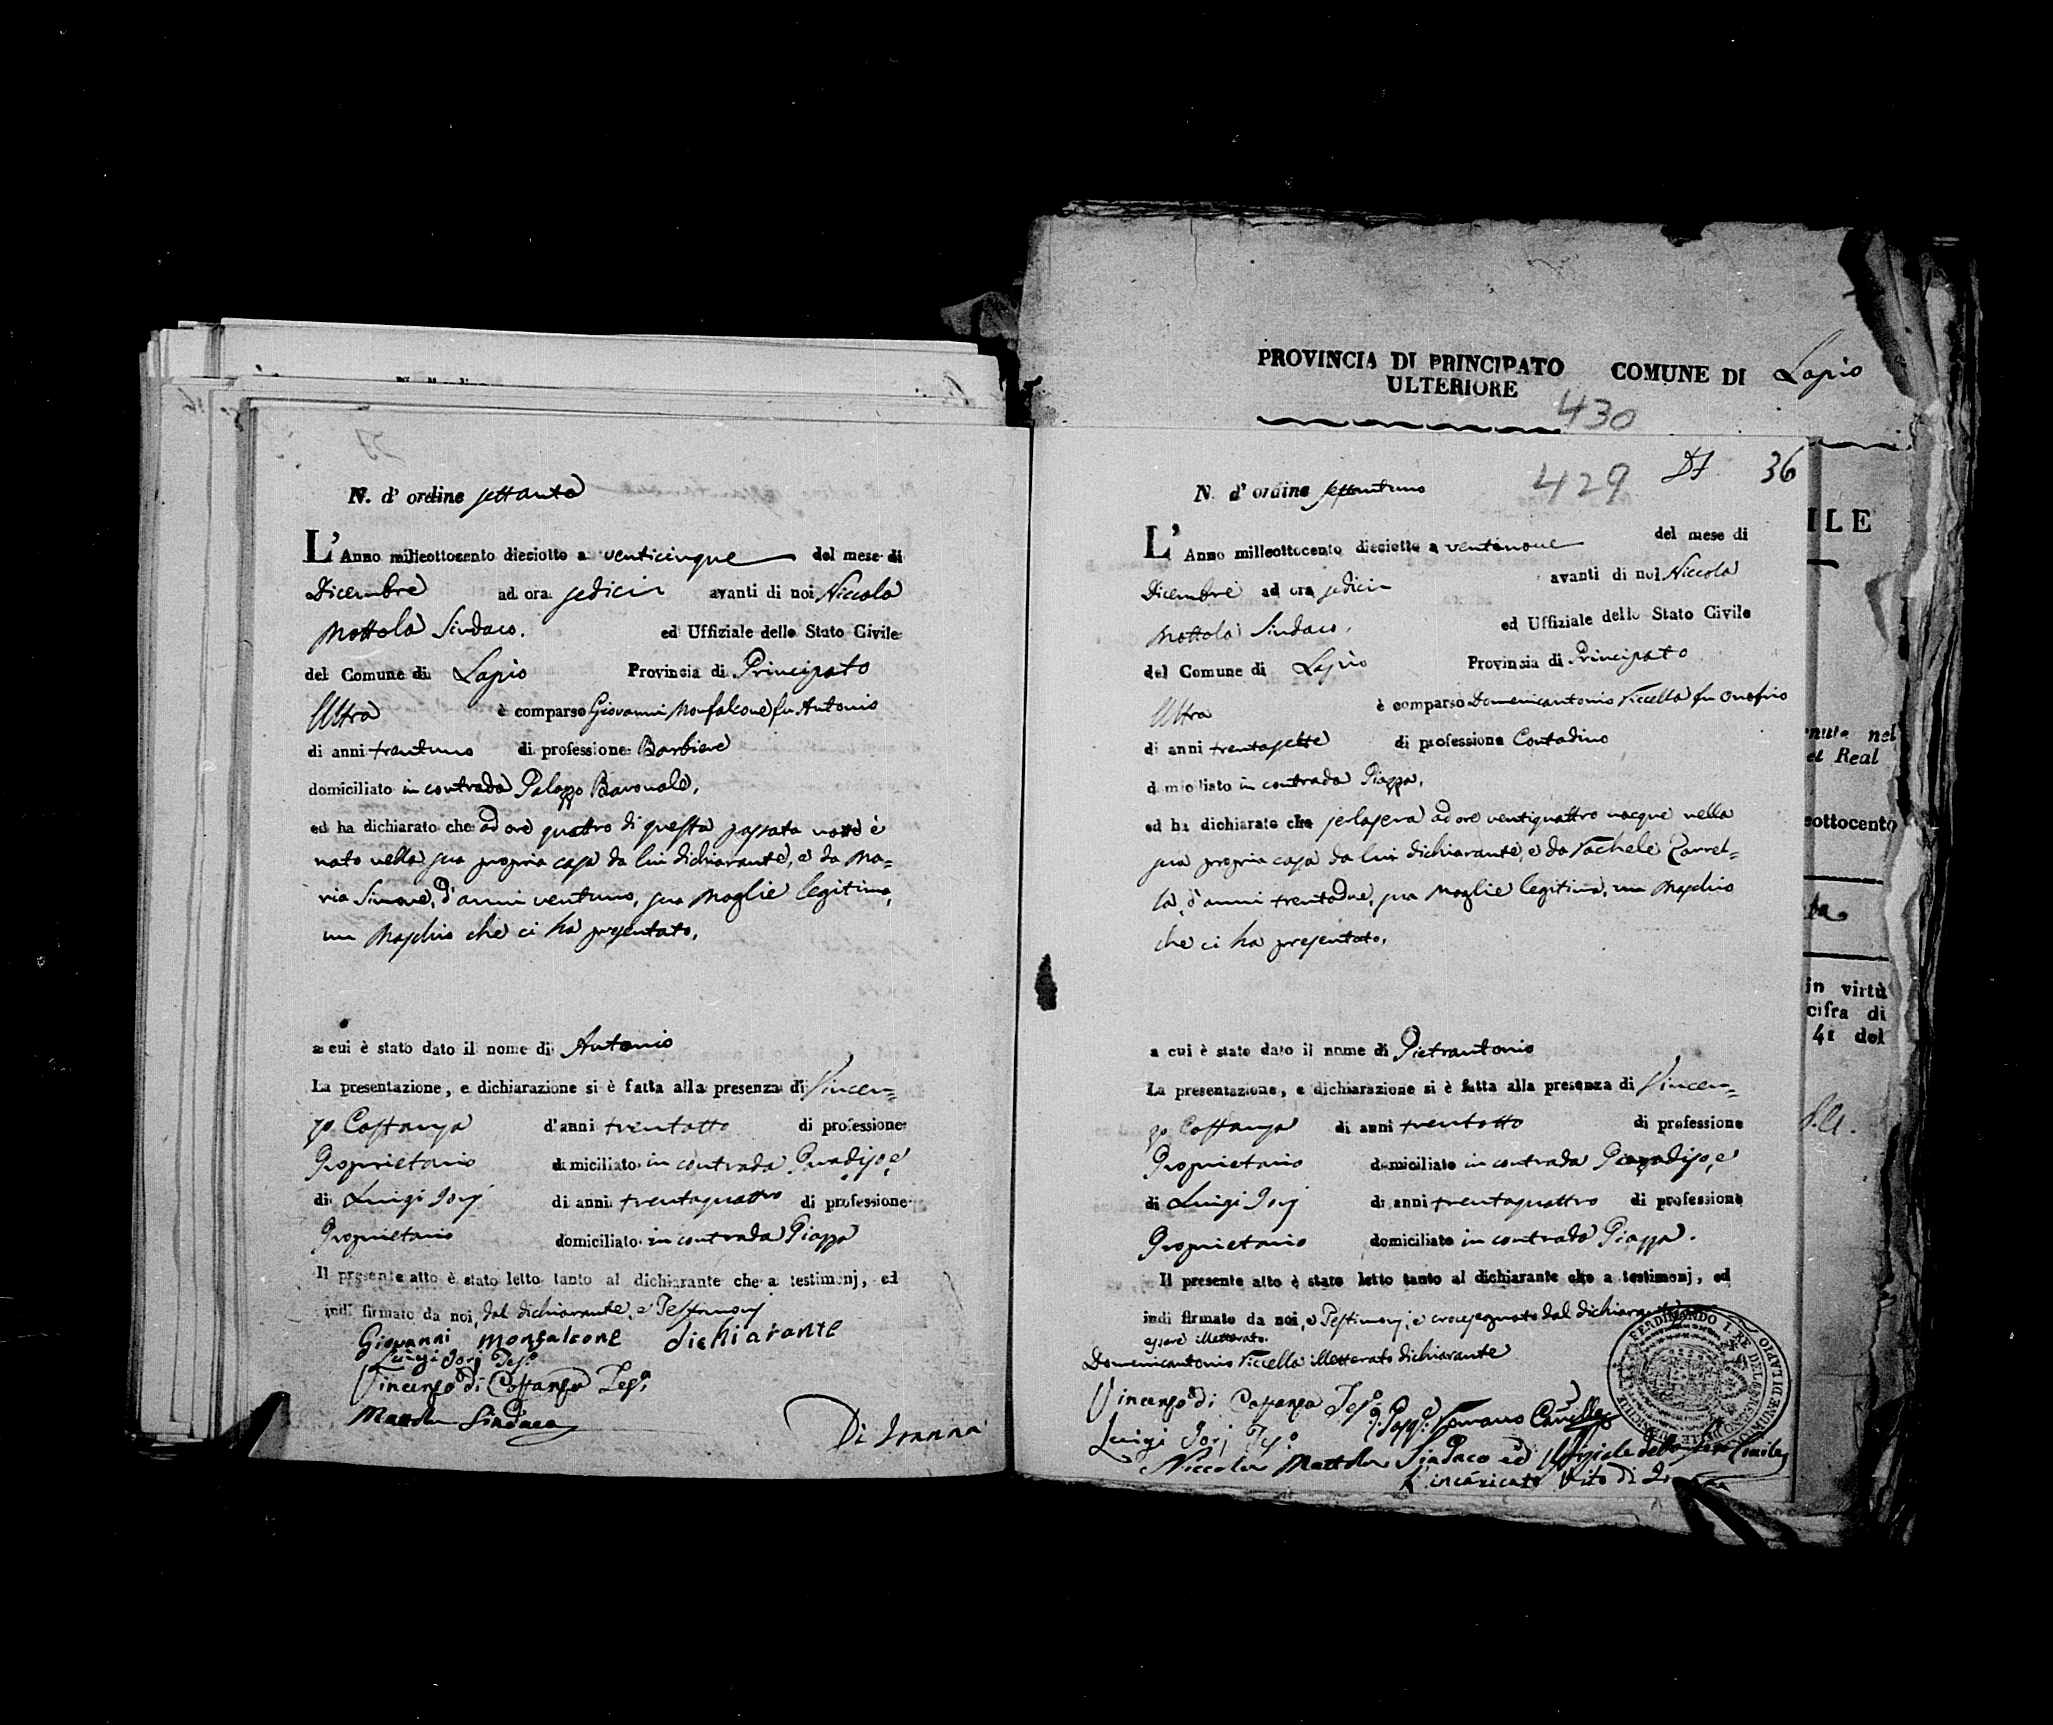 N. d' ordine settanta
L' Anno milleottocento dieciotto a venticinque del mese di
Dicembre ad ora sedici avanti di noi Niccola
Mottola Sindaco. ed Uffiziale dello Stato Civile
del Comune di Lapio Provincia di Principato
Ultra è comparso Giovanni Monfalcone fu Antonio
di anni trentuno di professione Barbiere
domiciliato in contrada Palazzo Baronale,
ed ha dichiarato che ad ore quattro di questa passata notte è
nato nella sua propria casa da lui dichiarante, e da Ma=
ria Simone, d'anni ventuno, sua Moglie legitima,
un Maschio che ci ha presentato,
a cui è stato dato il nome di Antonio
La presentazione, e dichiarazione si è fatta alla presenza di Vincen=
zo Costanza d'anni trentotto di professione
Proprietario domiciliato in contrada Paradiso, e
di Luigi Iorj di anni trentaquattro di professione
Proprietario domiciliato in contrada Piazza
Il presente atto è stato letto tanto al dichiarante che a testimonj, ed
indi firmato da noi, dal dichiarante, e Testimonj
Giovanni Monfalcone dichiarante
Luigi Iorj Tes.º
Vincenzo di Costanza Tes.º
Mottola Sindaco
Di Ioanna
PROVINCIA DI PRINCIPATO COMUNE DI Lapio
ULTERIORE
430
429 36
N. d' ordine settantuno
L' Anno milleottocento dieciotto a ventinove del mese di
Dicembre ad ora sedici avanti di noi Niccola
Mottola Sindaco, ed Uffiziale dello Stato Civile
del Comune di Lapio Provincia di Principato
Ultra è comparso Domenicantonio Viccella fu Onofrio
di anni trentasette di professione Contadino
domiciliato in contrada Piazza,
ed ha dichiarato che jerlasera ad ore ventiquattro nacque nella
sua propria casa da lui dichiarante, e da Rachele Carrel=
la, d'anni trentadue, sua Moglie legitima, un Maschio
che ci ha presentato,
a cui è stato dato il nome di Pietrantonio
La presentazione, e dichiarazione si è fatta alla presenza di Vincen=
zo Costanza di anni trentotto di professione
Proprietario domiciliato in contrada Paradiso, e
di Luigi Iorj di anni trentaquattro di professione
Proprietario domiciliato in contrada Piazza.
Il presente atto è stato letto tanto al dichiarante che a testimonj, ed
indi firmato da noi, e Testimonj, e crocesegnato dal dichiarante
essere illetterato.
Domenicantonio Viccella illetterato dichiarante
Vincenzo di Costanza Tes.º
Luigi Iorj Tes.º
Niccola Mottola Sindaco ed Uffiziale dello Stato Civile
L'incaricato Vito di
FERDINANDO I. RE DEL
COMUNE DI LAPIO
ILE
nute nel
el Real
eottocento
ta
in virtù
cifra di
41 del